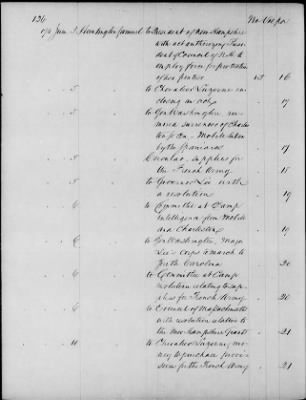 126
June 5 Huntington Samuel to President of New Hampshire
with act authorizing Presi-
dent & Council of N. H. to
employ force for protection
of her frontier 13 16
5 to Chevalier Luzerne en-
closing an 17
5 to Gen Washington
surrender of Charles
ton &c &c - Mobile taken
by the Spaniards 17
5 Circular, supplies for
the French Army 18
5 to Governor Lee with
a resolution 19
6 to Committee at Camp
Intelligence from Mobile
and Charleston 19
6 to Gen Washington, Major
Lee's Corps to march to
South Carolina 20
6 to Committee at Camp
resolution relating to sup-
plies for French Army 20
6 to Council of Massachusetts
with resolution relative to
the New Hampshire Grants 21
10 to Chevalier Luzerne, mo-
ney to purchase provi-
sions for the French Army 21